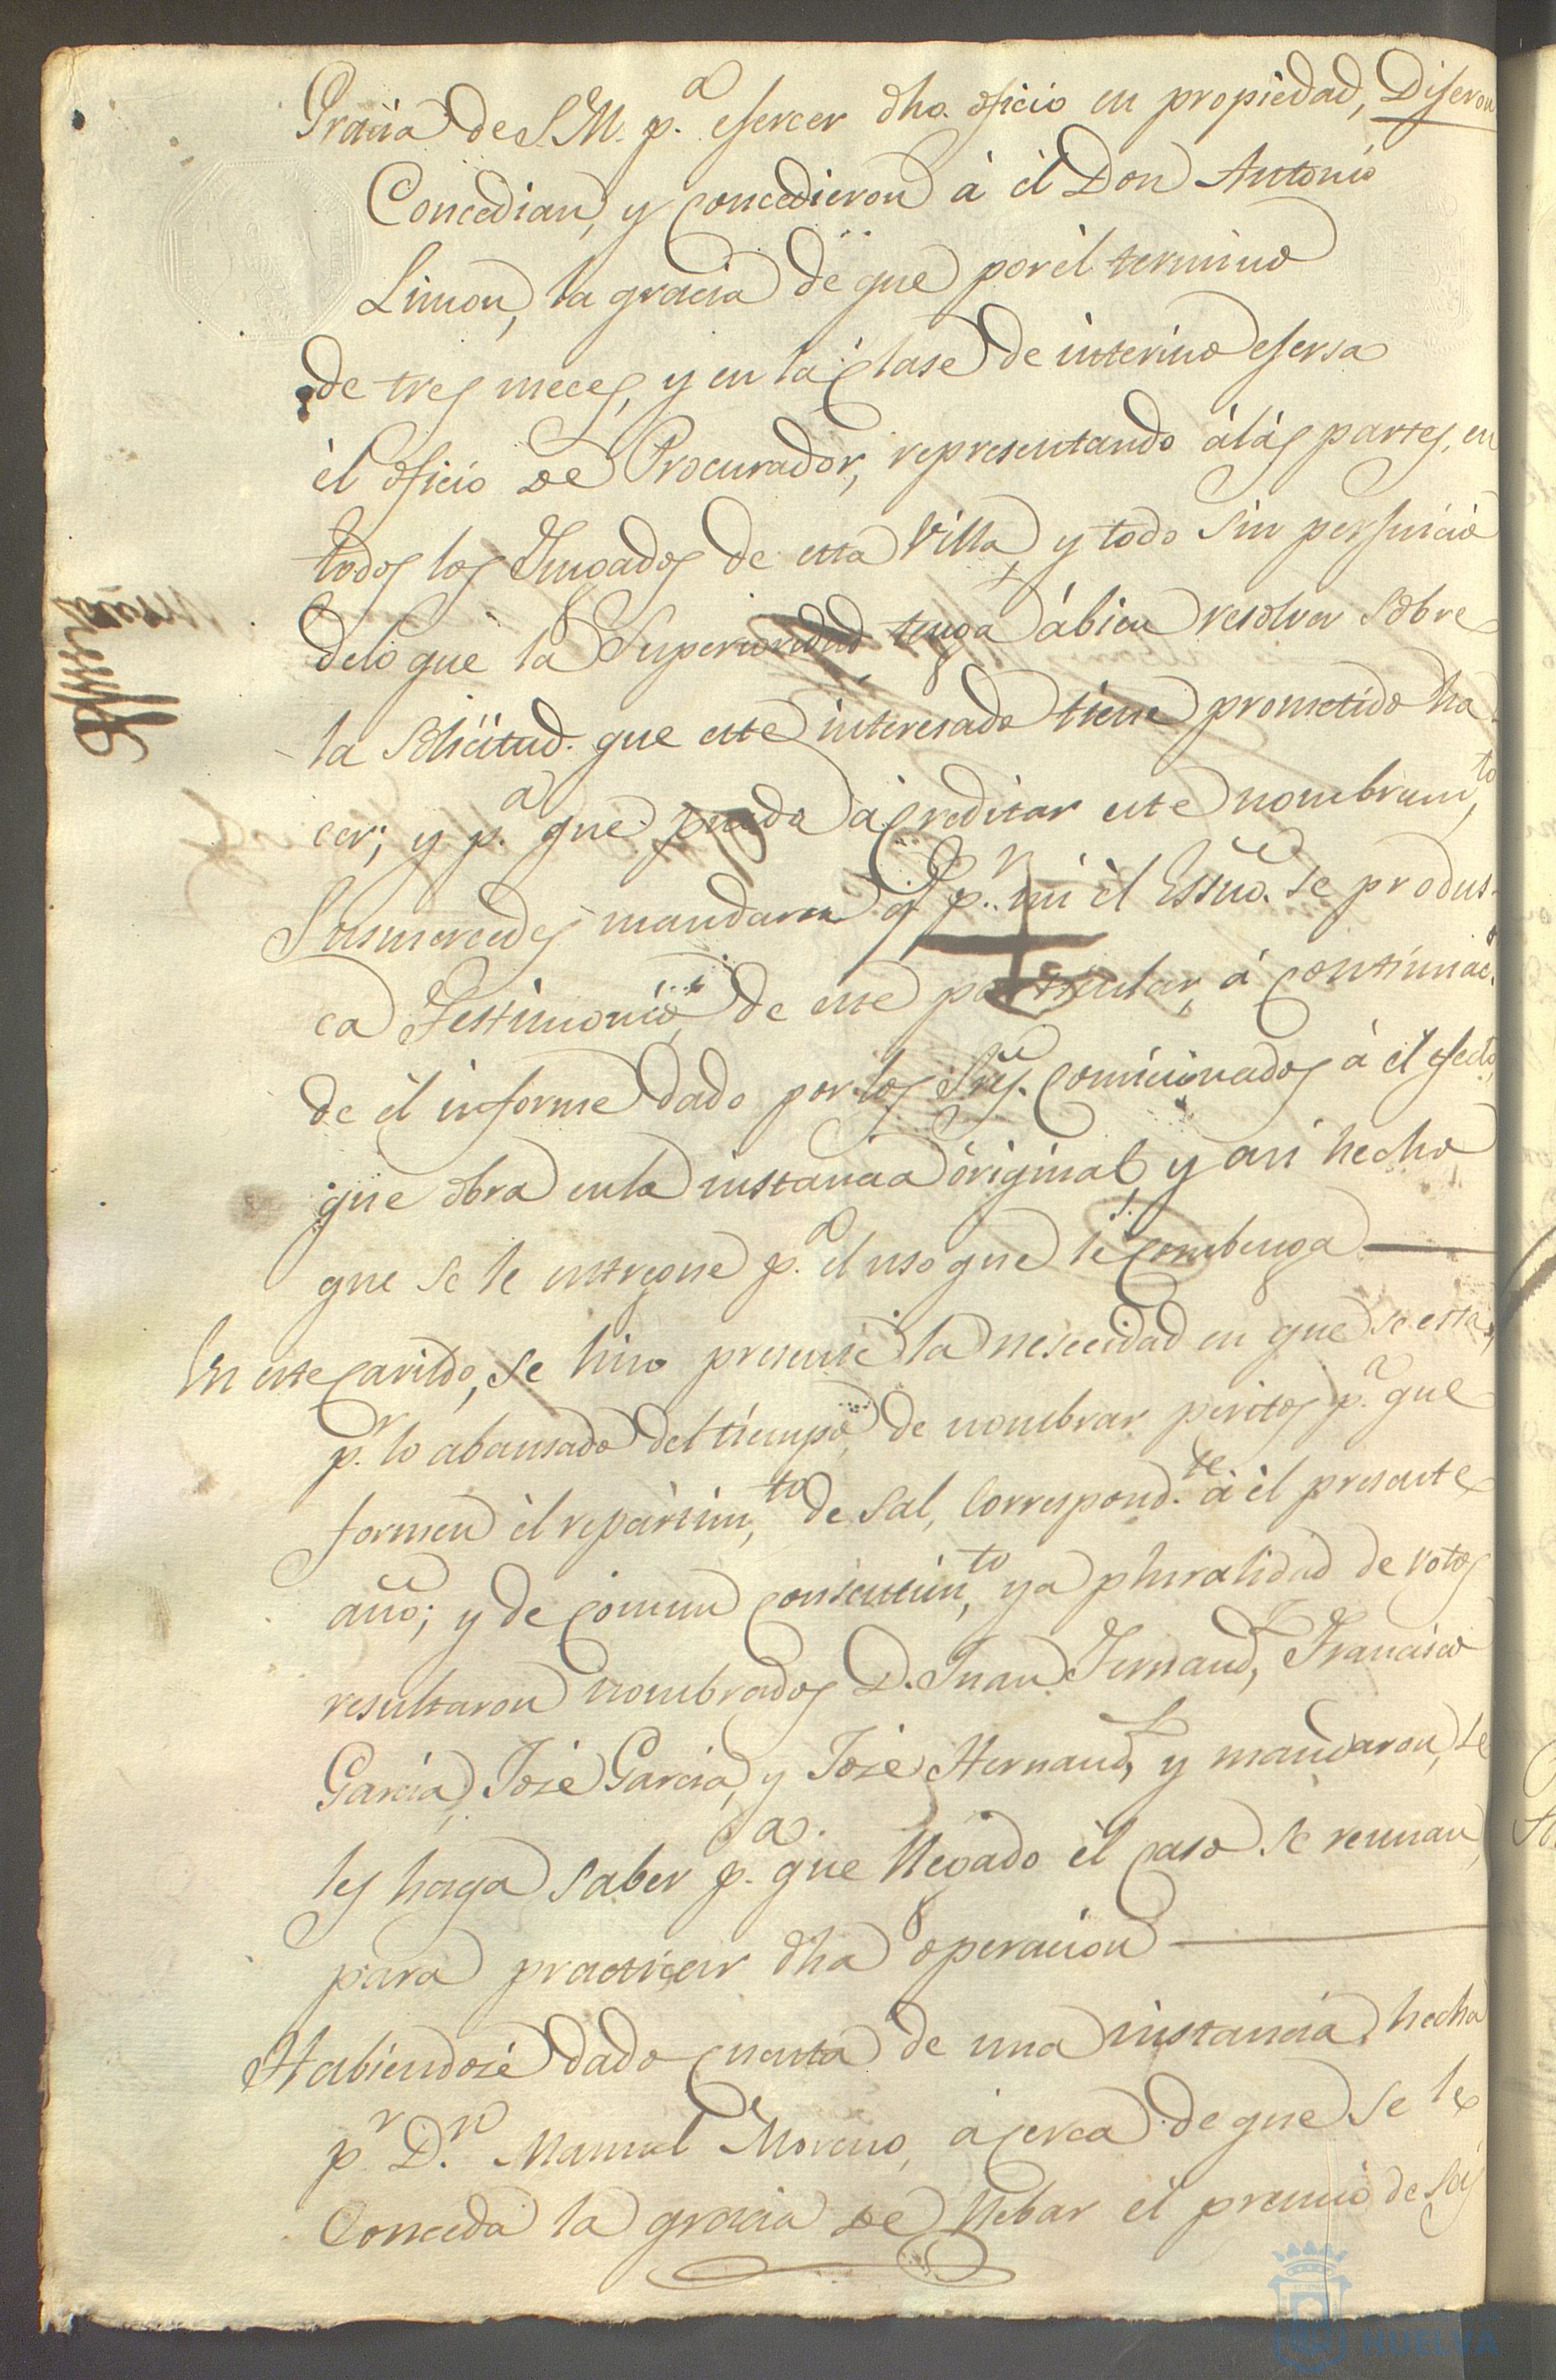 Gracia de S.M. p.ª eserser dho. oficio en propiedad, Diseron
Concedian, y concedieron à él Don Antonio
Limon, la gracia de que por él termino
de tres meces, y en la clase de interino esersa
él oficio de Procurador, representando á las partes, en
todos los Jusgados de esta Villa, y todo sin persuicio
delo que la Superioridad, tenga ábien resolver sobre
la solicitud que este interesado tiene prometido ha
cer; y p.ª que pueda acreditar este nombram.to
Susmercedes mandaron q.e p.r mi él Essno. se produs-
ca Testimonio, de este particular, á continuac.n
de él informe dado por los Sres. Comicionados à él efecto,
que obra enla instancia original, y asi hecho
que se le entregue p.ª el uso que le combenga
En este Cavildo, se hiso presente la nescecidad en que se está,
p.r lo abansado del tiempo, de nombrar peritos p.ª que
formen él repartim.to de Sal, correspond.te à él presente
año; y de comun consentim.to, ya pluralidad de votos
resultaron nombrados D. Juan Fernand.z, Francisco
Garcia, José Garcia, y José Hernand.z, y mandaron, se
les haga saber p.ª que llegado él caso se reunan,
para practicar dha operacion
Habiendosé dado cuenta de una instancia, hecha
p.r D.n Manuel Moreno, acerca de que se le
conceda la gracia de llebar él premio de Seis
HUELVA